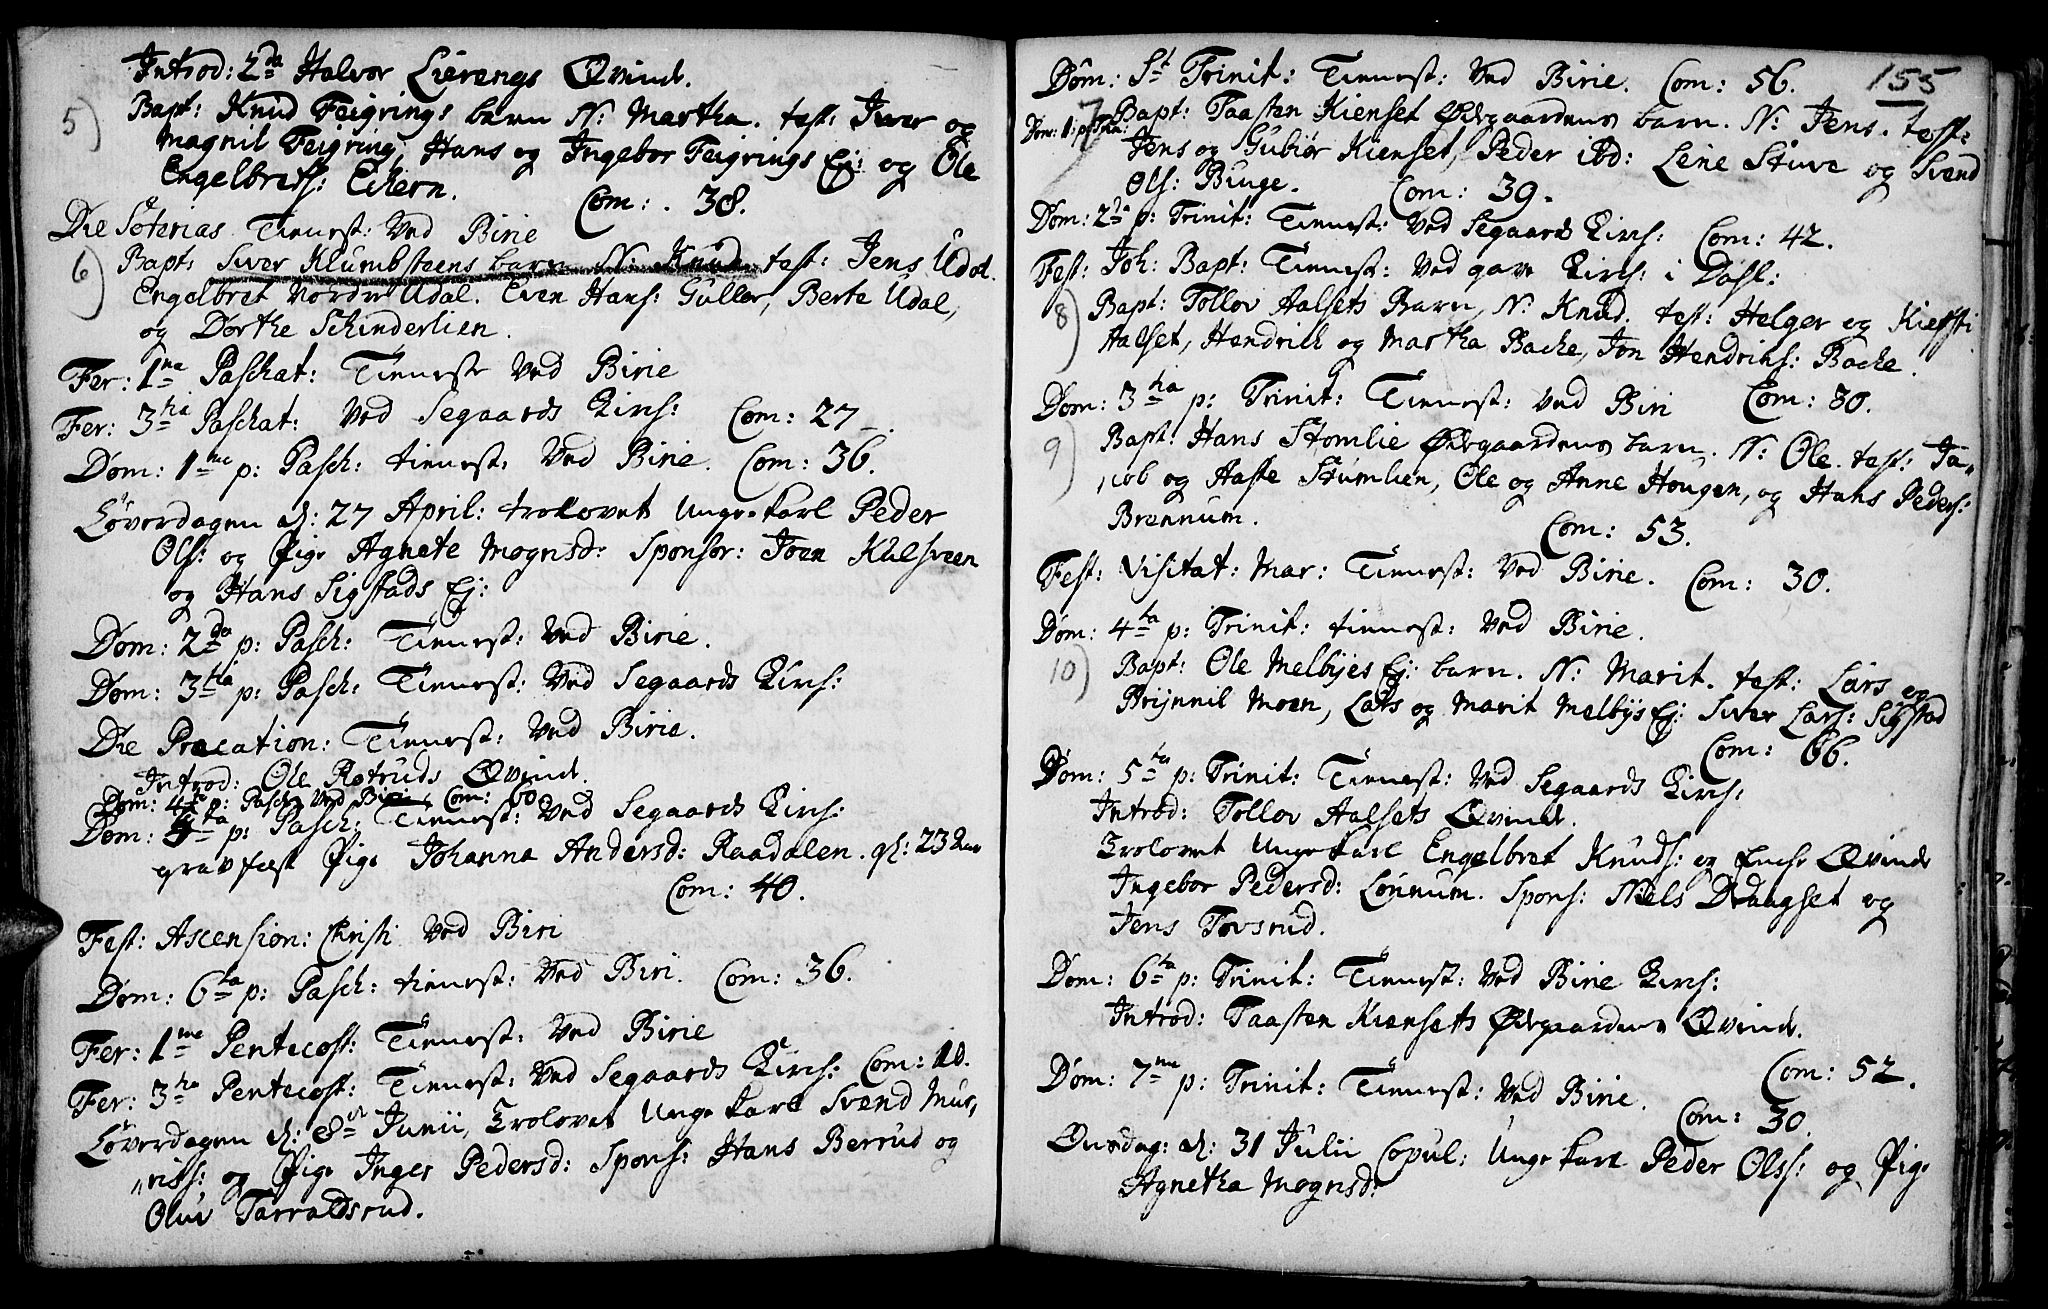 Introd: 2da Halvor Lierengs Qvinde.
5) Bapt: Knud Feigrings barn N: Martha. test: Iver og
Magnil Feigring, Hans og Ingebor Feigrings Ej: og Ole
Engelbrets: Eckern. Com: 38.
Die Soterias Tienest: Ved Birie
6) Bapt: Siver Klumbsteens barn N: Knud test: Jens Udal.
Engelbret Nordre Udal. Even Hans: Guller, Berte Udal,
og Dorthe Schinderlien.
Fer: 1ma Paschat: Tieneste Ved Birie
Fer: 3tia Paschat: Ved Segaards Kirch: Com: 27.
Dom: 1me p: Pasch: tienest: Ved Birie. Com: 36.
Løverdagen d: 27 April: trolovet Unge karl Peder
Ols: og Pige Agnete Mognsd: Sponsor: Joen Kulsveen
og Hans Sigstads Ej:
Dom: 2da p: Pasch: Tienest: Ved Birie.
Dom: 3tia p: Pasch: Tienest: Ved Segaards Kirch:
Die Precation: Tienest: Ved Birie.
Introd: Ole Rotruds Qvinde.
Dom: 4ta p: Pasch: Ved Birie, Com: 60.
Dom: 5ta p: Pasch: Tienest: Ved Segaards Kirch:
gravfæst Pige Johanna Andersd: Raadalen. gl: 23 Aar
Com: 40.
Fest: Ascension: Christi Ved Biri
Dom: 6ta p: Pasch: tienest: Ved Biri. Com: 36.
Fer: 1me Pentecost: Tienest: Ved Birie
Fer: 3tia Pentecost: Tienest: Ved Segaards Kirch: Com: 10.
Løverdagen d: 8de Junii, Trolovet Unge karl Svend Mur,
"riss: og Pige Inger Pedersd: Spons: Hans Berrud og
Oluf Tarraldsrud.
155
Dom: St Trinit: Tienest: Ved Birie. Com: 56.
Dom: 1: p: Trin: 7) Bapt: Taasten Kienset Ødegaardens barn. N: Jens. test:
Jens og Gubiør Kienset, Peder ibd: Lene Stuve og Svend
Ols: Buuge. Com: 39.
Dom: 2da p: Trinit: Tienest: Ved Segaards Kirch: Com: 42.
Fest: Joh: Bapt: Tienest: Ved gave Kirch: i Dahl:
8) Bapt: Tollov Aalsets Barn, N: Knud. test: Helger og Kiersti
Aalset, Hendrich og Martha Backe, Jon Hendrichs: Backe.
Dom: 3tia p: Trinit: Tienest: Ved Biri Com: 80.
9) Bapt: Hans Stomlie Ødegaardens barn. N: Ole. test: Ja,,
,,cob og Aaste Stumlien, Ole og Anne Hougen, og Hans Peders:
Brennum. Com: 53.
Fest: Visitat: Mar: Tienest: Ved Birie. Com: 30.
Dom: 4ta p: Trinit: tienest: Ved Birie.
10) Bapt: Ole Melbyes Ej: barn. N: Marit. test: Lars og
Brynnil Moen, Lars og Marit Melbys Ej: Siver Lars: Sigstad
Com: 66.
Dom: 5ta p: Trinit: Tienest: Ved Segaards Kirch:
Introd: Tollov Aalsets Qvinde.
Trolovet Unge karl Engelbret Knuds: og Enche Qvinde
Ingebor Pedersd: Lønnum. Spons: Niels Draagset og
Jens Tovsrud.
Dom: 6ta p: Trinit: Tienest: Ved Birie Kirch:
Introd: Taasten Kiensets Ødegaardens Qvinde.
Com: 52.
Dom: 7me p: Trinit: Tienest: Ved Birie.
Com: 30.
Onsdag: d: 31 Julii Copul: Unge karl Peder Olss: og Pige
Agnetha Mognsd: